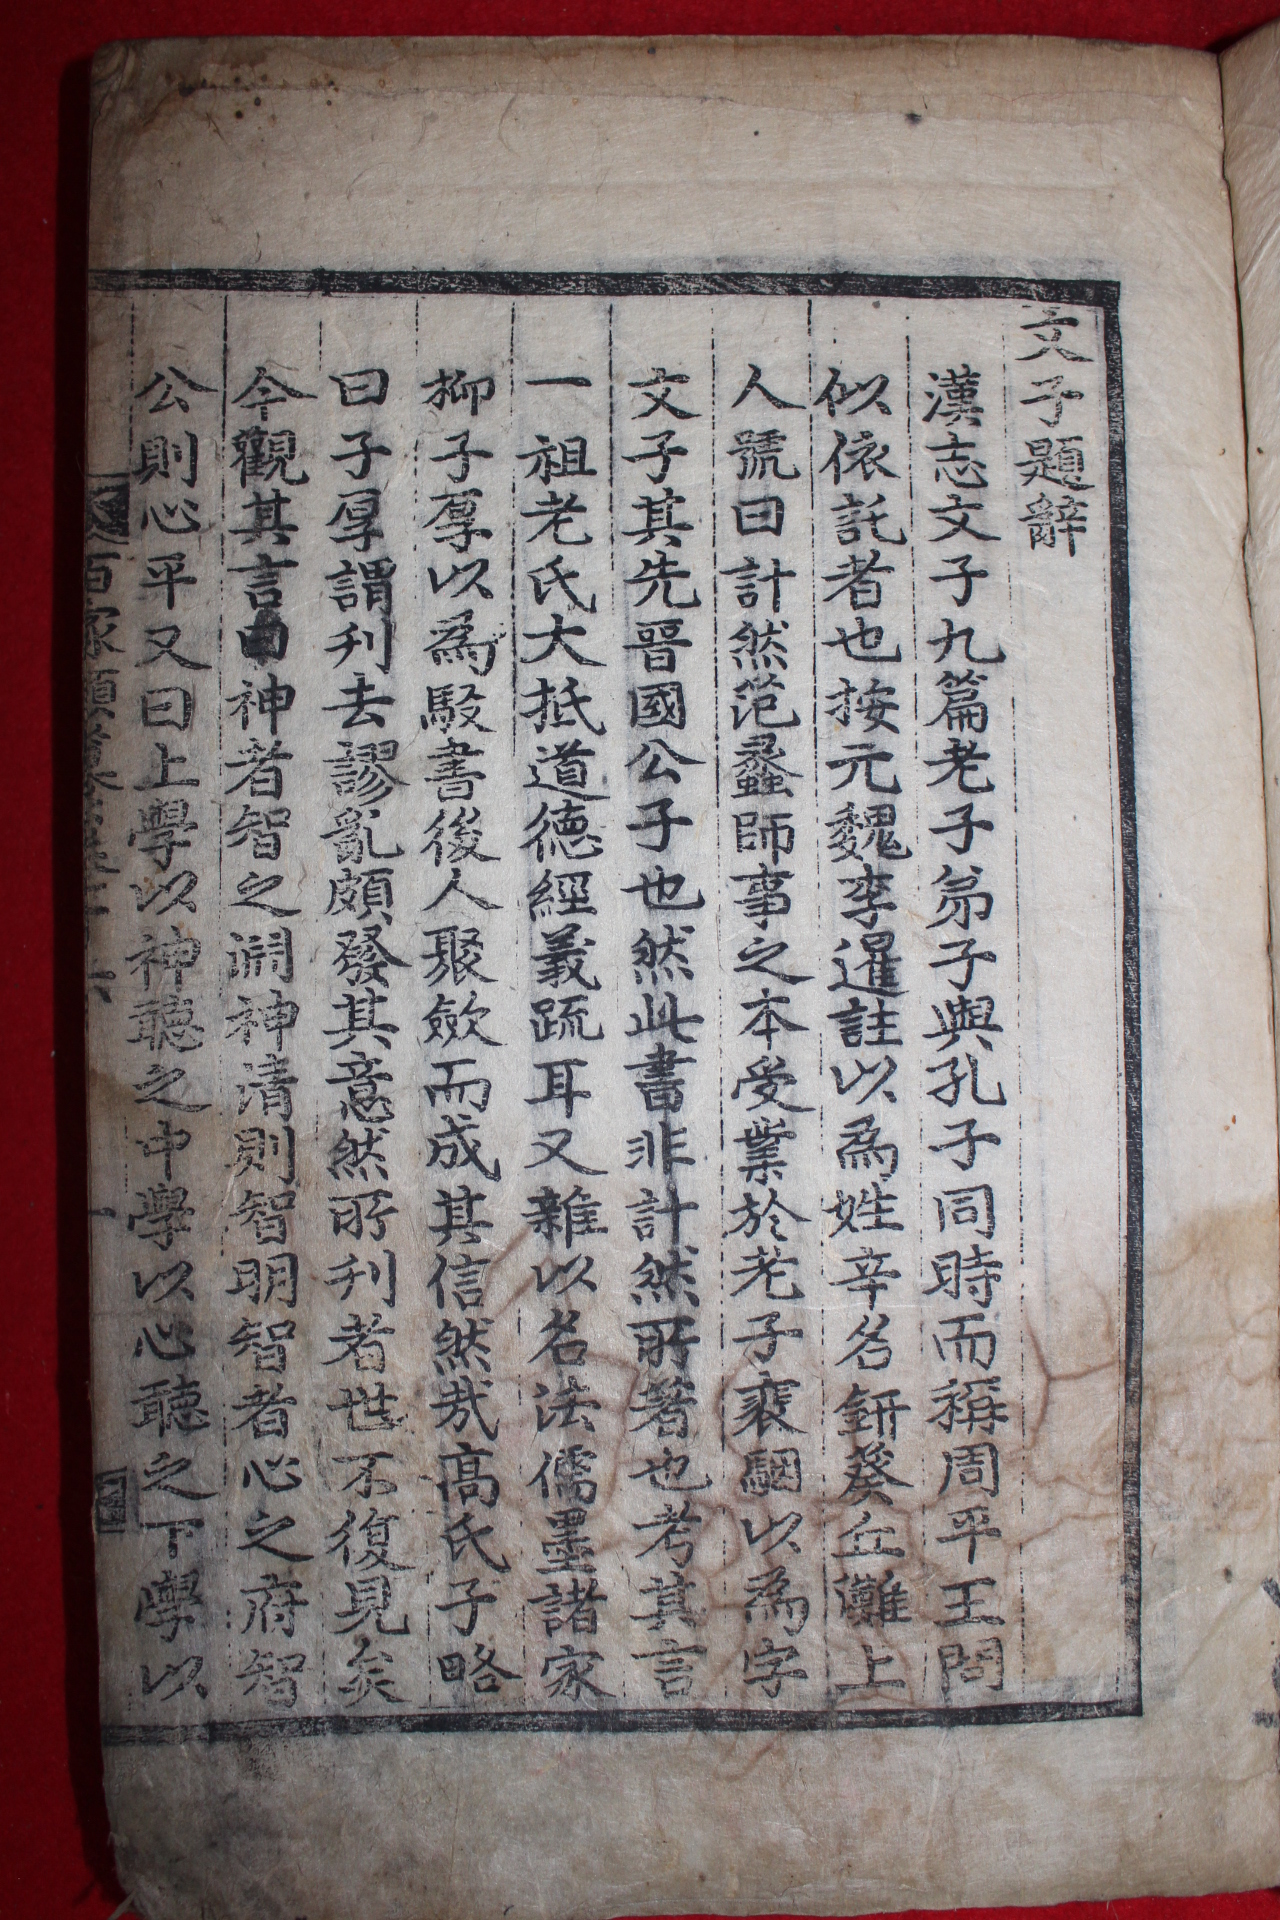 文子題辭
漢志文子九篇老子弟子與孔子同時而稱周平王問
似依託者也按元魏李暹註以爲姓辛名鈃葵丘濮上
人號曰計然范蠡師事之本受業於老子裵駰以爲字
文子其先晉國公子也然此書非計然所著也考其言
一祖老氏大抵道德經義疏耳又雜以名法儒墨諸家
柳子厚以爲駁書後人聚斂而成其信然哉高氏子略
曰子厚謂刋去謬亂頗發其意然所刋者世不復見矣
今觀其言曰神者智之淵神清則智明智者心之府智
公則心平又曰上學以神聽之中學以心聽之下學以
百家類纂卷